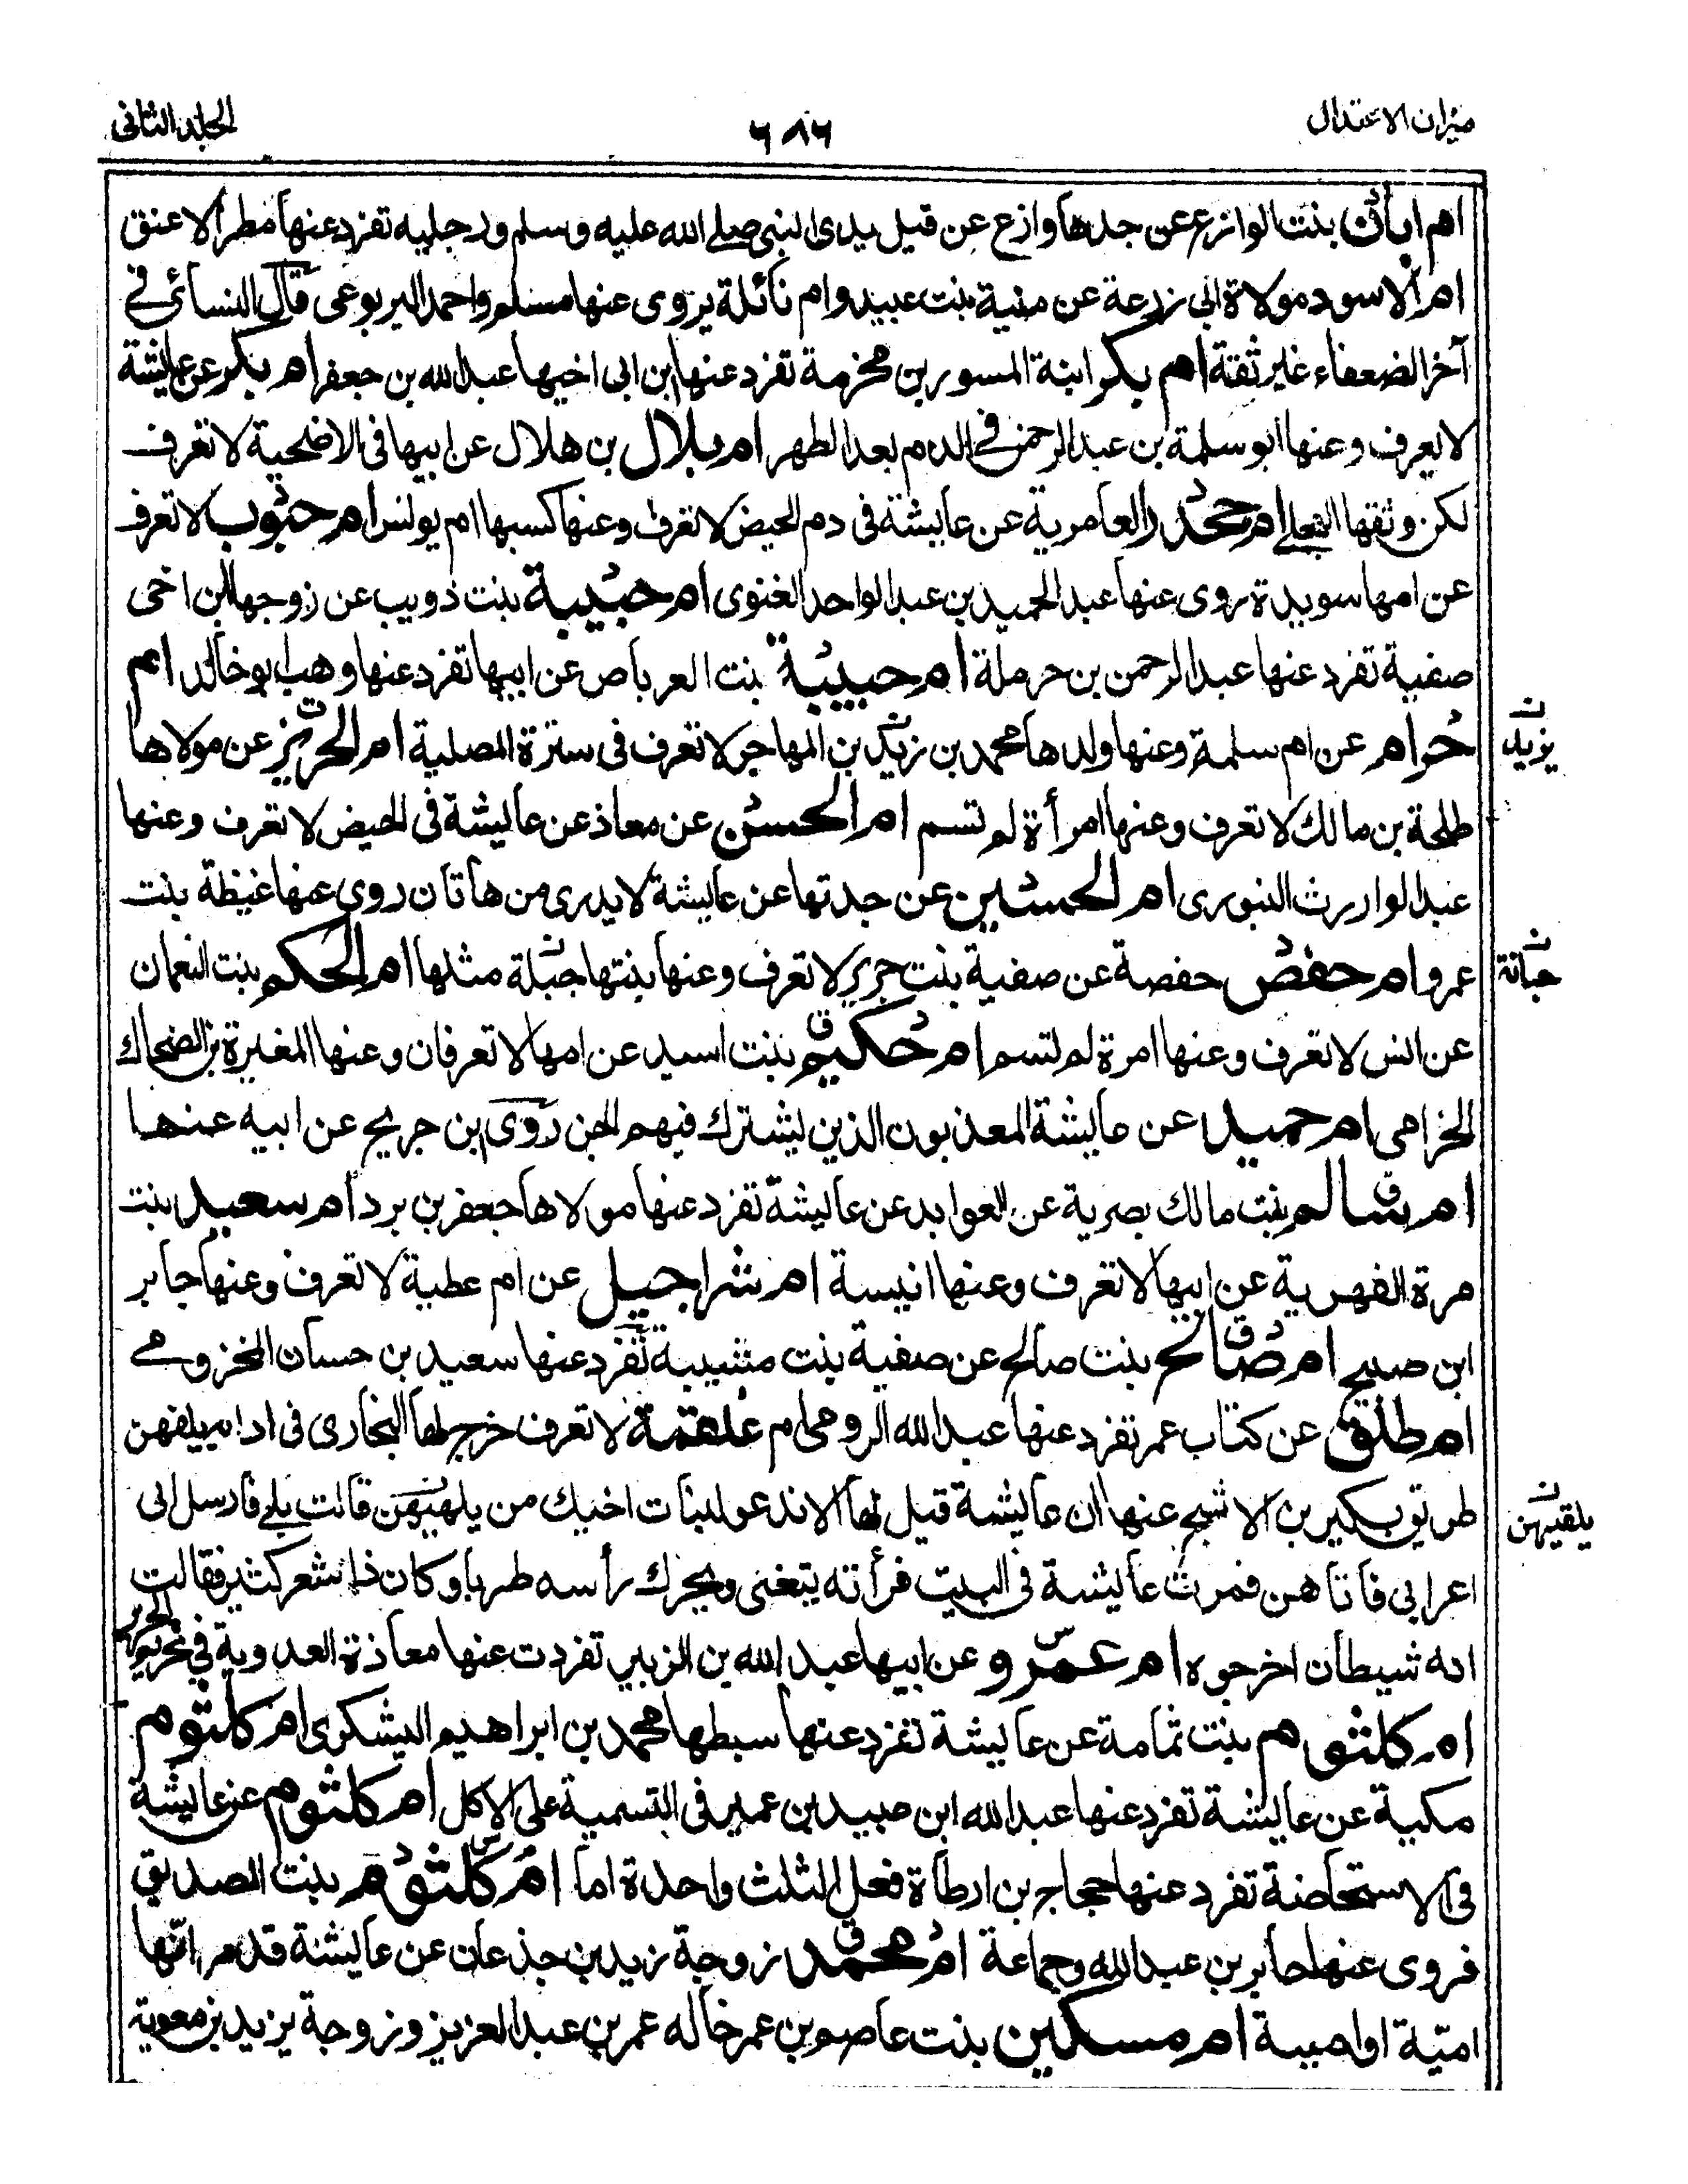 ميزان الاعتدال
٦٨٦
الجلد الثانى
ام ابان بنت الوازع عن جدها وازع عن قبل يدى النبى صلے الله عليه وسلم ورجليه تفرد عنها مطر الاعنق
ام الاسود مولاة ابى زرعة عن منية بنت عبيد وام نائلة يروى عنها مسلم واحمد اليربوعى قال النسائى فے
آخر الضعفاء غير ثقة ام بكر ابنة المسور بن مخرمة تفرد عنها ابن ابى اخيها عبد الله بن جعفر ام بكر عن عايشة
لا يعرف وعنها ابو سلمة بن عبد الرحمن فے الدم بعد الطهر ام بلال بن هلال عن ابيها فى الاضحية لا تعرف
لكن وثقها العجلے ام جحدر العامرية عن عايشة فى دم الحيض لا تعرف وعنها كسبها ام يونس ام جنوب لا تعرف
عن امها سويدة روى عنها عبد الحميد بن عبد الواحد الغنوى ام حبيبة بنت ذويب عن زوجها ابن اخى
صفية تفرد عنها عبد الرحمن بن حرملة ام حبيبة بنت العرباض عن ابيها تفرد عنها وهب ابو خالد ام
حرام عن ام سلمة وعنها ولدها محمد بن زيد بن المهاجر لا تعرف فى سترة المصلية ام الحرير عن مولاها
يزيد ن
طلحة بن مالك لا تعرف وعنها امرأة لم تسم ام الحسن عن معاذ عن عايشة فى الحيض لا تعرف وعنها
عبد الوارث التنورى ام الحسين عن جدتها عن عايشة لا يدرى من هاتان روى عنها غبطة بنت
عمرو ام حفص حفصة عن صفية بنت جرير لا تعرف وعنها بنتها جبلة مثلها ام الحكم بنت النعمان
حبانة ن
عن انس لا تعرف وعنها امرة لم تسم ام حكيم بنت اسيد عن امها لا تعرفان وعنها المغيرة بن الضحاك
الخزامى ام حميد عن عايشة المعذبون الذين يشترك فيهم الجن روى ابن جريج عن ابيه عنها
ام سالم بنت مالك بصرية عن العوابد عن عايشة تفرد عنها مولاها جعفر بن برد ام سعيد بنت
مرة الفهرية عن ابيها لا تعرف وعنها انيسة ام شراحيل عن ام عطية لا تعرف وعنها جابر
ابن صبيح ام صالح بنت صالح عن صفية بنت شيبة تفرد عنها سعيد بن حسان المخزومے
ام طلق عن كتاب عمر تفرد عنها عبد الله الرومى ام علقمة لا تعرف خرج لها البخارى فى ادابه
طريق بكير بن الاشج عنها ان عايشة قيل لها الا ندعو لبنات اخيك من يلهيهن قالت بلے فارسل الى
يلقيهن ن
اعرابى فاتاهن فمرت عايشة فى البيت فرأته يتغنى ويحرك رأسه طربا وكان ذا شعر كثير فقالت
انه شيطان اخرجوه ام عمرو عن ابيها عبد الله بن الزبير تفردت عنها معاذة العدوية فى تحريم الحرير
ام كلثوم بنت ثمامة عن عايشة تفرد عنها سبطها محمد بن ابراهيم اليشكرى ام كلثوم
مكية عن عايشة تفرد عنها عبد الله ابن عبيد بن عمير فى التسمية على الاكل ام كلثوم عن عايشة
فى الاستحاضة تفرد عنها حجاج بن ارطاة فعل الثلث واحدة اما ام كلثوم بنت الصديق
فروى عنها جابر بن عبد الله وجماعة ام محمد زوجة زيد بن جذعان عن عايشة قد مر انها
امية او امينة ام مسكين بنت عاصم بن عمر خاله عمر بن عبد العزيز وزوجة يزيد بن معوية